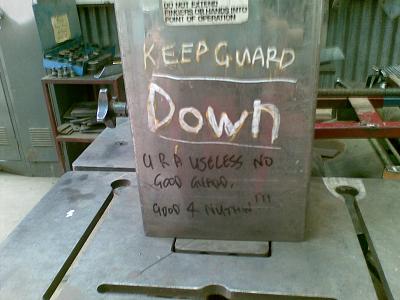 DO NOT EXTEND
FINGERS OR HANDS INTO
POINT OF OPERATION
KEEP GUARD
Down
U R A USELESS NO
GOOD GUARD,
GOOD 4 NUTHIN !!!